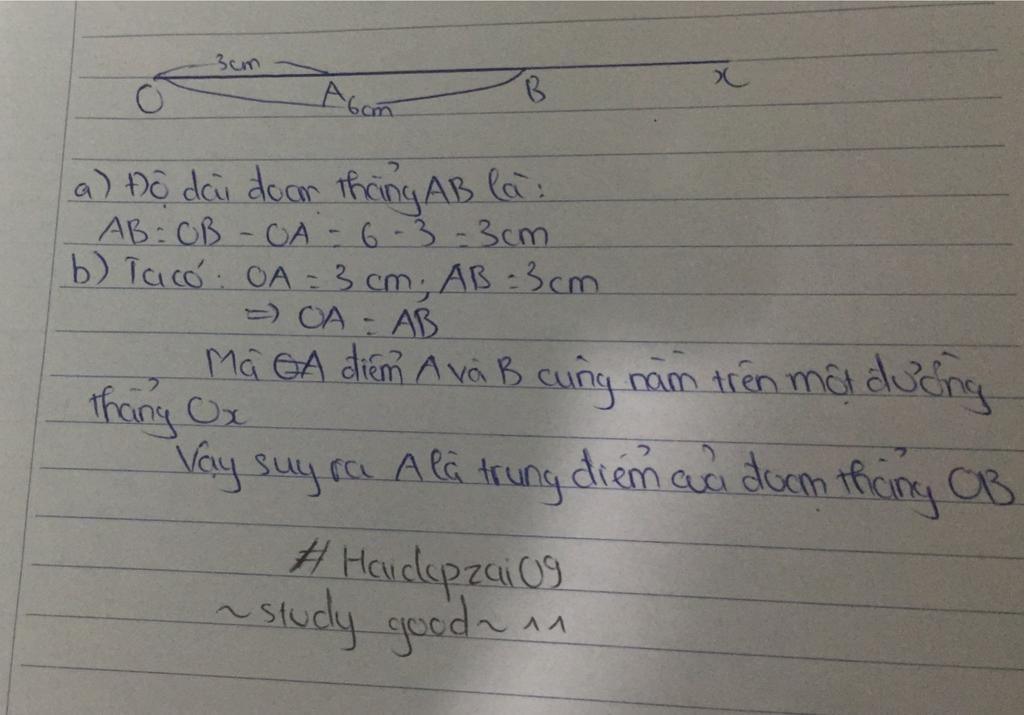 3cm
O A 6cm B x
a) Độ dài đoạn thẳng AB là:
AB = OB - OA = 6 - 3 = 3cm
b) Ta có: OA = 3 cm; AB = 3cm
=> OA = AB
Mà điểm A và B cùng nằm trên một đường
thẳng Ox
Vậy suy ra A là trung điểm của đoạn thẳng OB
# Haidepzai09
~study good~ ^^